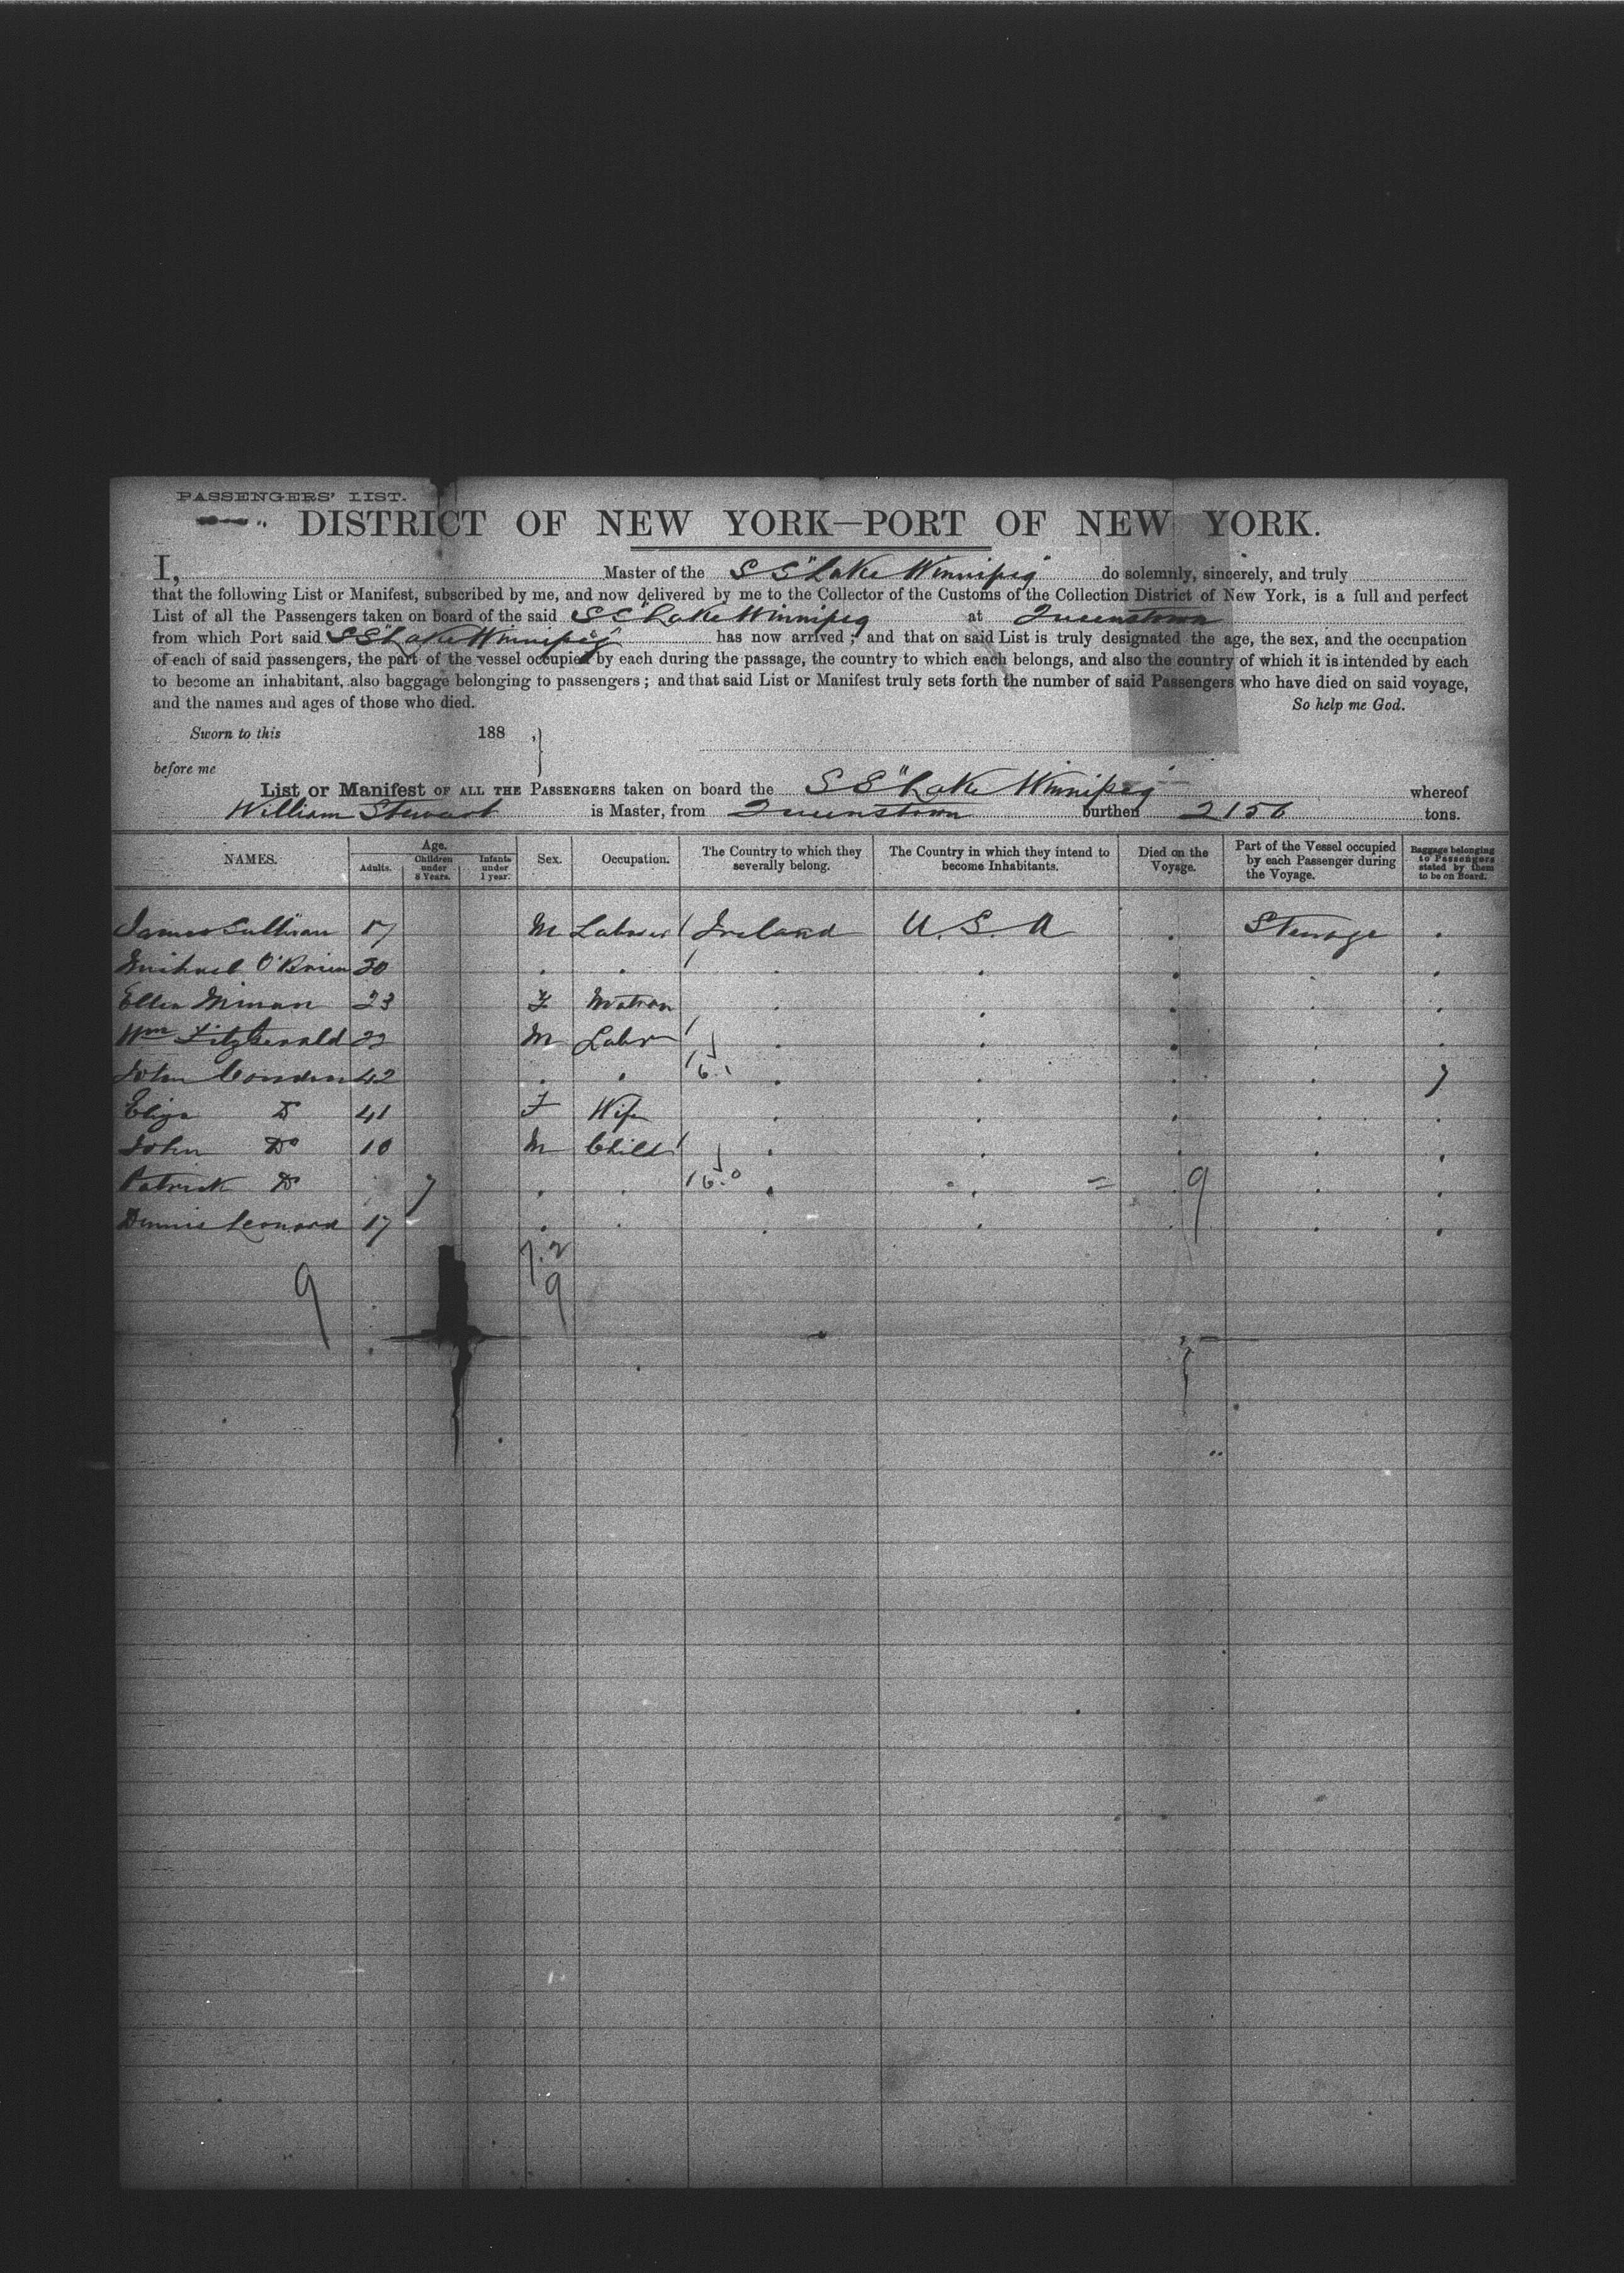 PASSENGERS' LIST.
DISTRICT OF NEW YORK—PORT OF NEW YORK.
I, Master of the S S "Lake Winnipeg" do solemnly, sincerely, and truly
that the following List or Manifest, subscribed by me, and now delivered by me to the Collector of the Customs of the Collection District of New York, is a full and perfect
List of all the Passengers taken on board of the said S S "Lake Winnipeg at Queenstown
from which Port said S S "Lake Winnipeg" has now arrived; and that on said List is truly designated the age, the sex, and the occupation
of each of said passengers, the part of the vessel occupied by each during the passage, the country to which each belongs, and also the country of which it is intended by each
to become an inhabitant, also baggage belonging to passengers; and that said List or Manifest truly sets forth the number of said Passengers who have died on said voyage,
and the names and ages of those who died. So help me God.
Sworn to this 188 , }
before me
List or Manifest OF ALL THE PASSENGERS taken on board the S S "Lake Winnipeg" whereof
William Stewart is Master, from Queenstown burthen 2156 tons.
NAMES. Age. Adults. Children under 8 Years. Infants under 1 year. Sex. Occupation. The Country to which they severally belong. The Country in which they intend to become Inhabitants. Died on the Voyage. Part of the Vessel occupied by each Passenger during the Voyage. Baggage belonging to Passengers stated by them to be on Board.
James Sullivan 17 M Labourer Ireland U. S. A Steerage
Michael O'Brien 30
Ellen 23 F Matron
Wm Fitzgerald 22 M Labr
John 42 7
Eliza Do 41 F Wife
John Do 10 M Child
Patrick Do 7 9
Dennis Leonard 17
7.2
9 9